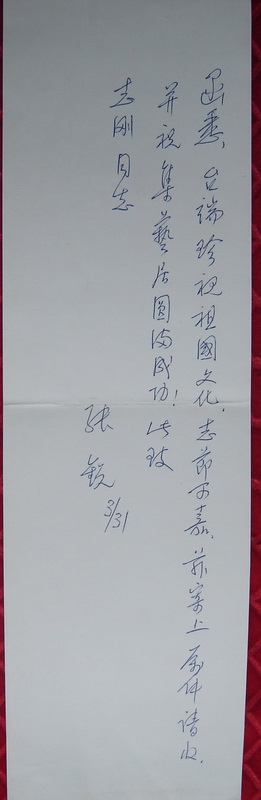 函悉，台端珍視祖國文化，志節可嘉，茲寄上原件請收，
并祝集藝居圓滿成功！此致
志刚同志
張銳
3/31